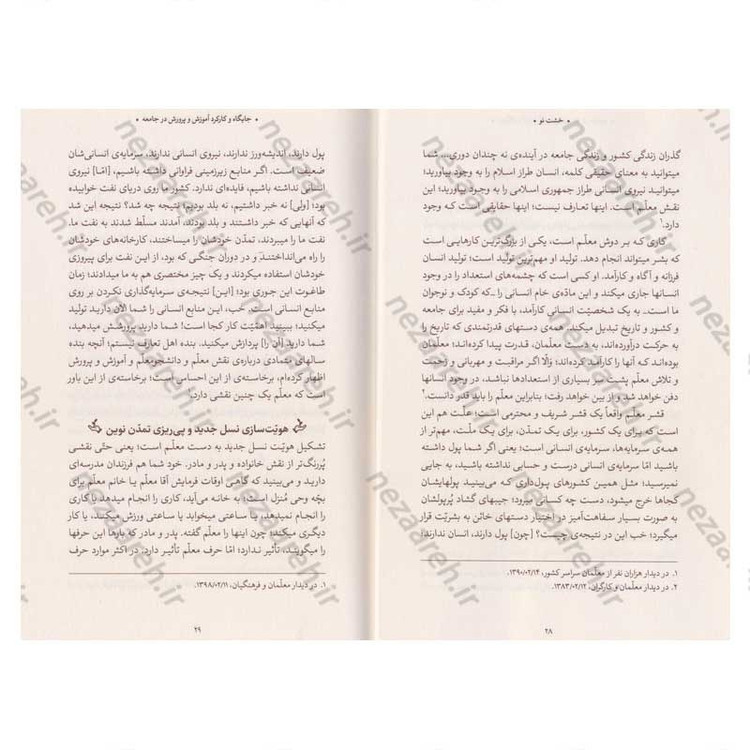 • خشت نو •
گذران زندگی کشور و زندگی جامعه در آینده‌ی نه چندان دوری،... شما
میتوانید به معنای حقیقی کلمه، انسان طراز اسلام را به وجود بیاورید؛
میتوانید نیروی انسانی طراز جمهوری اسلامی را به وجود بیاورید؛ این
نقش معلّم است. اینها تعارف نیست؛ اینها حقایقی است که وجود
دارد.۱
کاری که بر دوش معلّم است، یکی از بزرگ‌ترین کارهایی است
که بشر میتواند انجام دهد. تولید او مهم‌ترین تولید است؛ تولید انسان
فرزانه و آگاه و کارآمد. او کسی است که چشمه‌های استعداد را در وجود
انسانها جاری میکند و این مادّه‌ی خام انسانی را ـ که کودک و نوجوان
ما است ـ به یک شخصیّت انسانی کارآمد، با فکر و مفید برای جامعه
و کشور و تاریخ تبدیل میکند. همه‌ی دستهای قدرتمندی که تاریخ را
به حرکت درآورده‌اند، به دست معلّمان، قدرت پیدا کرده‌اند؛ معلّمان
بوده‌اند که آنها را کارآمد کرده‌اند؛ والّا اگر مراقبت و مهربانی و زحمت
و تلاش معلّم پشت سرِ بسیاری از استعدادها نباشد، در وجود انسانها
دفن خواهد شد و از بین خواهد رفت؛ بنابراین معلّم را باید قدر دانست.۲
قشر معلّم واقعاً یک قشر شریف و محترمی است؛ علّت هم این
است که برای یک کشور، برای یک تمدّن، برای یک ملّت، مهم‌تر از
همه‌ی سرمایه‌ها، سرمایه‌ی انسانی است؛ یعنی اگر شما پول داشته
باشید امّا سرمایه‌ی انسانی درست و حسابی نداشته باشید، به جایی
نمیرسید؛ مثل همین کشورهای پول‌داری که می‌بینید پولهایشان
کجاها خرج میشود، دست چه کسانی میرود؛ جیبهای گشاد پُرپولشان
به صورت بسیار سفاهت‌آمیز در اختیار دستهای خائن به بشریّت قرار
میگیرد؛ خب این در نتیجه‌ی چیست؟ [چون] پول دارند، انسان ندارند؛
۱. در دیدار هزاران نفر از معلّمان سراسر کشور، ۱۳۹۰/۰۲/۱۴.
۲. در دیدار معلّمان و کارگران، ۱۳۸۳/۰۲/۱۲.
۲۸
• جایگاه و کارکرد آموزش و پرورش در جامعه •
پول دارند، اندیشه‌ورز ندارند، نیروی انسانی ندارند، سرمایه‌ی انسانی‌شان
ضعیف است. اگر منابع زیرزمینی فراوانی داشته باشیم، [امّا] نیروی
انسانی نداشته باشیم، فایده‌ای ندارد. کشور ما روی دریای نفت خوابیده
بود؛ [ولی] نه خبر داشتیم، نه بلد بودیم؛ نتیجه چه شد؟ نتیجه این شد
که آنهایی که خبر داشتند و بلد بودند، آمدند مسلّط شدند به نفت ما،
نفت ما را میبردند، تمدّن خودشان را میساختند، کارخانه‌های خودشان
را راه می‌انداختند و در دوران جنگی که بود، از این نفت برای پیروزی
خودشان استفاده میکردند و یک چیز مختصری هم به ما میدادند؛ زمان
طاغوت این جوری بود؛ [این] نتیجه‌ی سرمایه‌گذاری نکردن بر روی
منابع انسانی است. خب، این منابع انسانی را شما دارید الان تولید
میکنید؛ ببینید اهمّیّت کار کجا است! شما دارید پرورشش میدهید،
شما دارید [آن را] پردازش میکنید. بنده اهل تعارف نیستم؛ آنچه بنده
سالهای متمادی درباره‌ی نقش معلّم و دانشجومعلّم و آموزش و پرورش
اظهار کرده‌ام، برخاسته‌ی از این احساس است؛ برخاسته‌ی از این باور
است که معلّم یک چنین نقشی دارد.۱
هویّت‌سازی نسل جدید و پی‌ریزی تمدّن نوین
تشکیل هویّت نسل جدید به دست معلّم است؛ یعنی حتّی نقشی
پُررنگ‌تر از نقش خانواده و پدر و مادر. خود شما هم فرزندان مدرسه‌ای
دارید و می‌بینید که گاهی اوقات فرمایش آقا معلّم یا خانم معلّم برای
بچّه وحی مُنزل است؛ به خانه می‌آید، کاری را انجام میدهد یا کاری
را انجام نمیدهد، یا ساعتی میخوابد یا ساعتی ورزش میکند، یا کار
دیگری میکند؛ چون اینها را معلّم گفته. پدر و مادر که بارها این حرفها
را میگویند، تأثیر ندارد؛ امّا حرف معلّم تأثیر دارد. در اکثر موارد حرف
۱. در دیدار معلّمان و فرهنگیان، ۱۳۹۸/۰۲/۱۱.
۲۹
nezaareh.ir